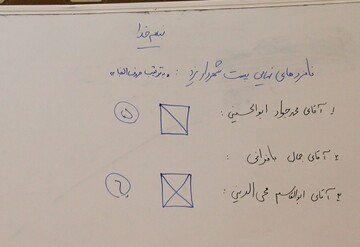 بسم خدا
نامزدهای نهایی پست شهردار یزد : *به ترتیب حروف الفبا*
۱ آقای محمدجواد ابوالحسینی : ۵
۲ آقای جمال نامرانی :
۳ آقای ابوالقاسم محی الدینی : ۶